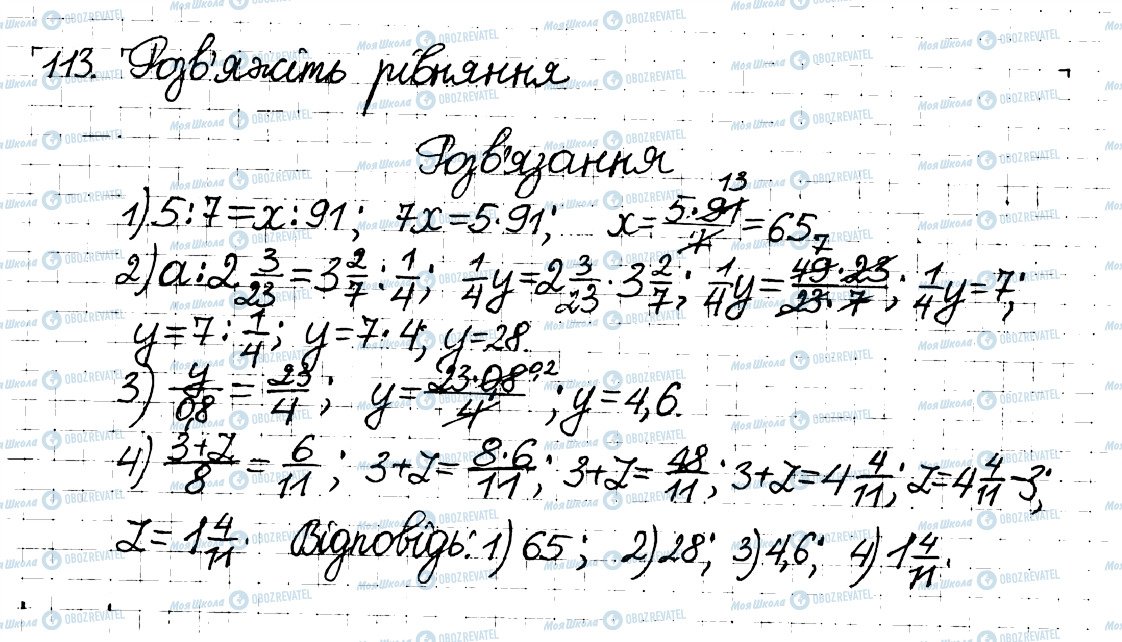 113. Розв'яжіть рівняння
Розв'язання
1) 5:7=x:91; 7x=5·91; x=(5·91)/7=65. 13
2) a:2 3/23=3 2/7:1/4; 1/4y=2 3/23·3 2/7; 1/4y=(49·23)/(23·7); 1/4y=7; 7
y=7:1/4; y=7·4; y=28.
3) y/0,8=23/4; y=(23·0,8)/4; y=4,6. 0,2
4) (3+z)/8=6/11; 3+z=(8·6)/11; 3+z=48/11; 3+z=4 4/11; z=4 4/11-3;
z=1 4/11. Відповідь: 1) 65; 2) 28; 3) 4,6; 4) 1 4/11.
МояШкола OBOZREVATEL